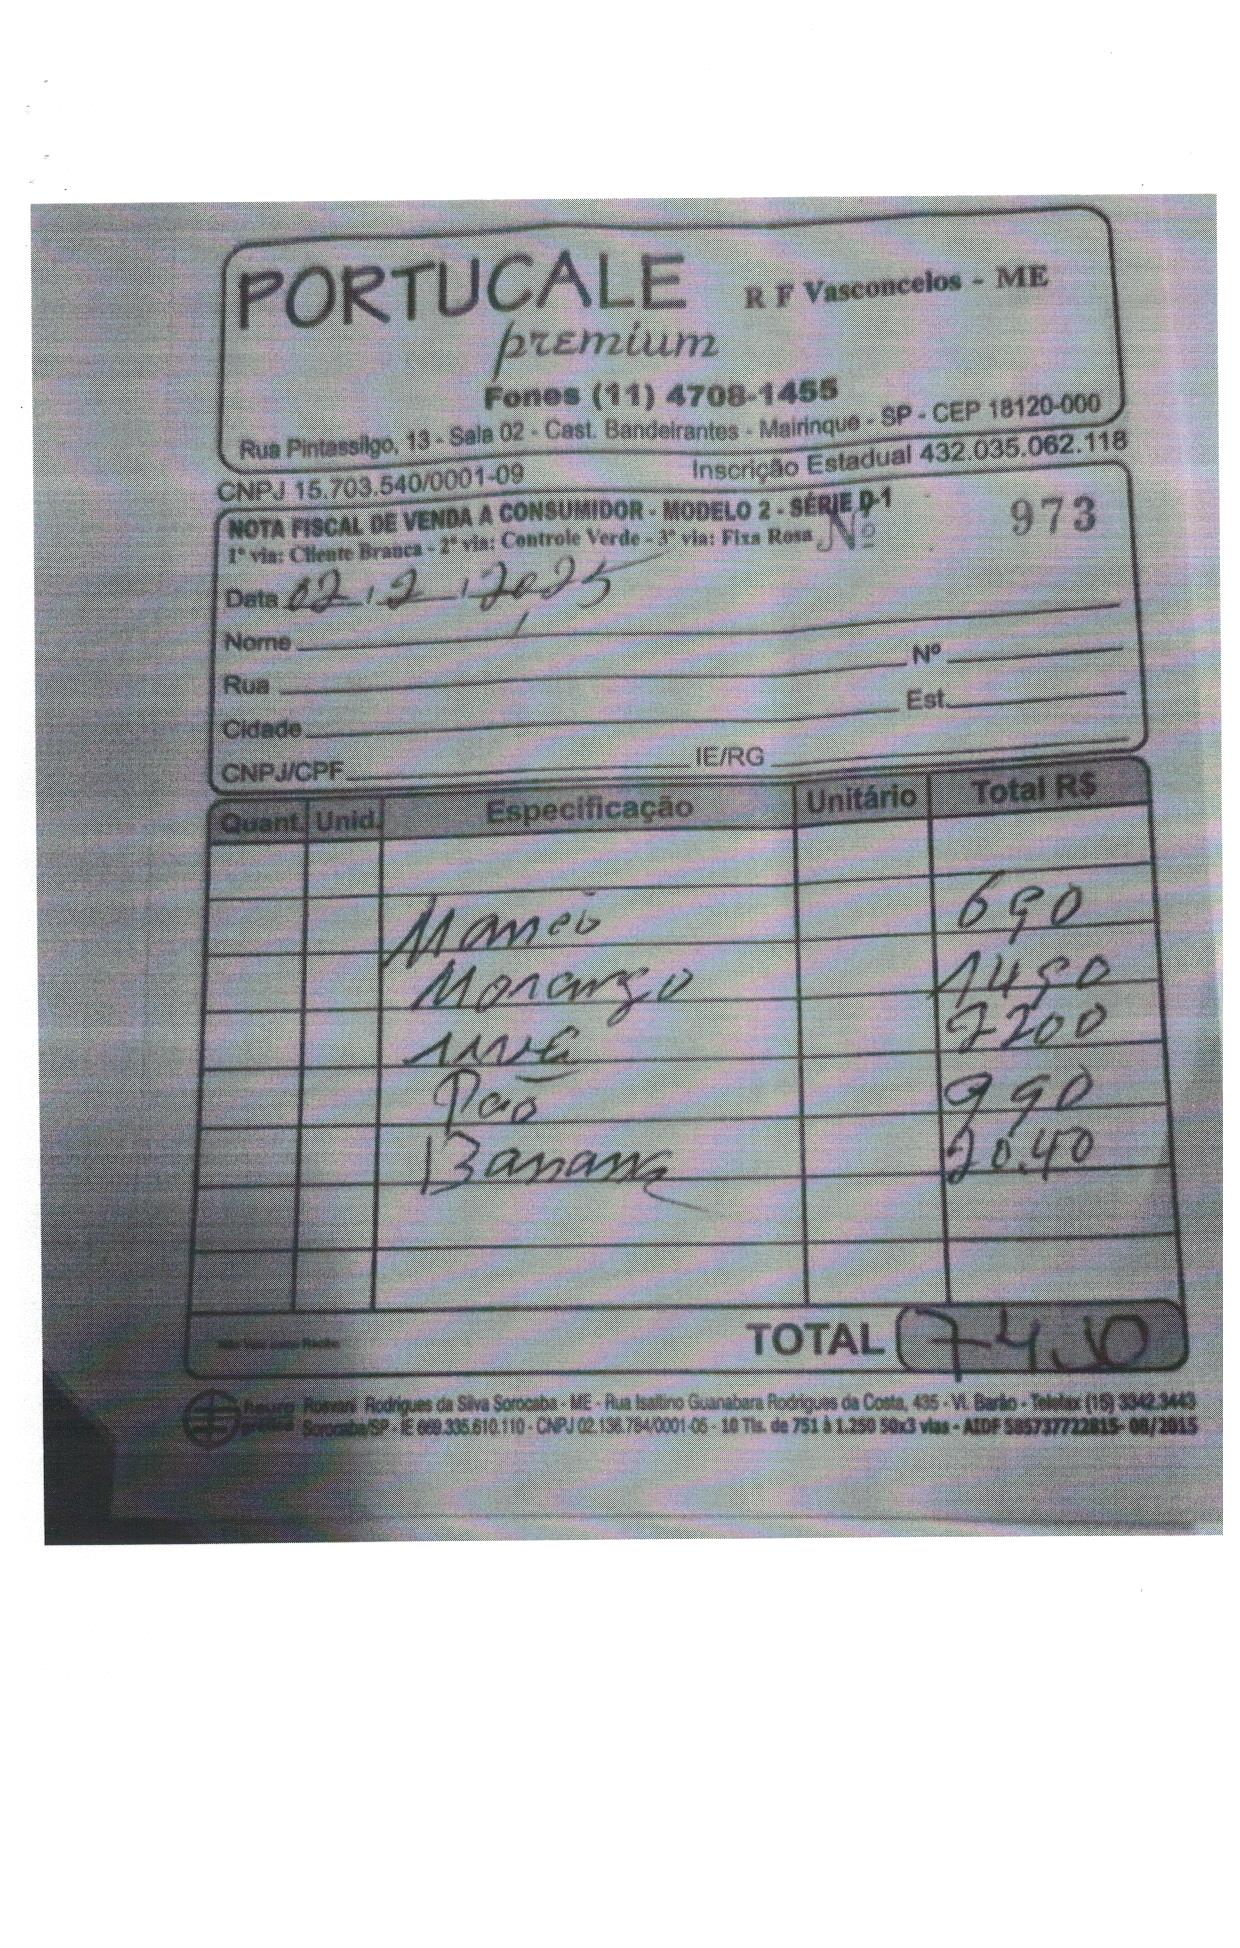 PORTUCALE R F Vasconcelos - ME
premium
Fones (11) 4708-1455
Rua Pintassilgo, 13 - Sala 02 - Cast. Bandeirantes - Mairinque - SP - CEP 18120-000
CNPJ 15.703.540/0001-09 Inscrição Estadual 432.035.062.118
NOTA FISCAL DE VENDA A CONSUMIDOR - MODELO 2 - SÉRIE D-1
1ª via: Cliente Branca - 2ª via: Controle Verde - 3ª via: Fixa Rosa Nº 973
Data 02 / 2 / 2025
Nome
Rua Nº
Cidade Est.
CNPJ/CPF IE/RG
Quant. Unid. Especificação Unitário Total R$
Mamão 690
Morango 1490
uva 2200
Pão 990
Banana 20.40
Não Vale como Recibo TOTAL 74,10
Rodrigues da Silva Sorocaba - ME - Rua Isaltino Guanabara Rodrigues da Costa, 435 - Vl. Barão - Telefax (15) 3342.3443
Sorocaba/SP - IE 669.335.610.110 - CNPJ 02.136.784/0001-05 - 10 Tls. de 751 à 1.250 50x3 vias - AIDF 585737722815- 08/2015